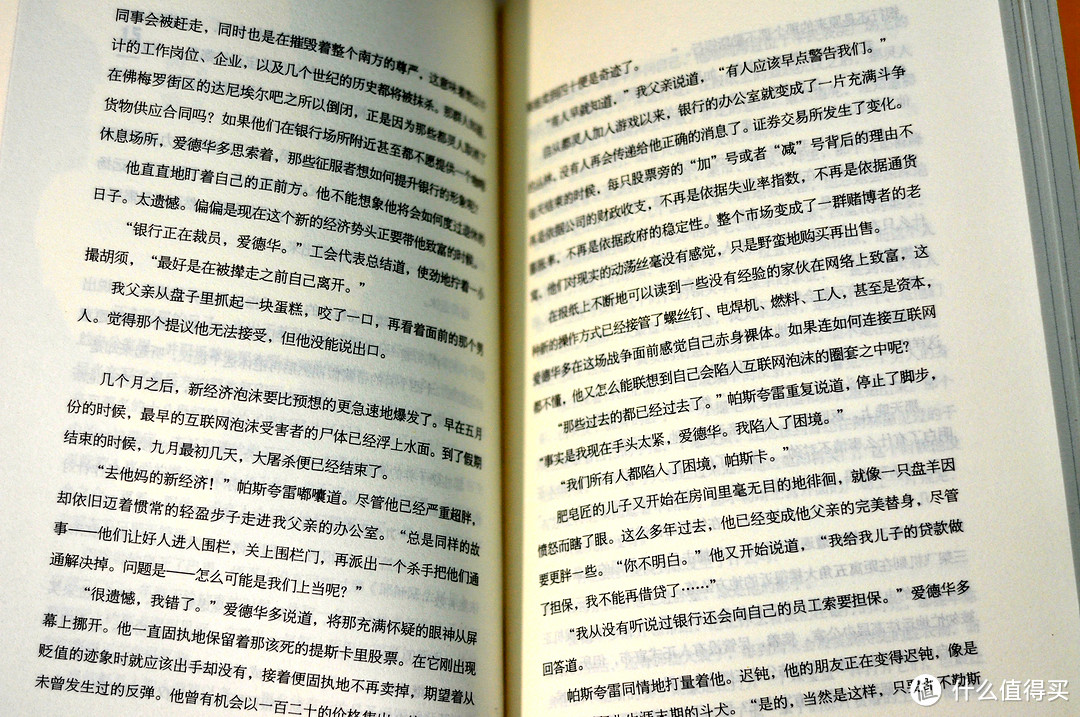 同事会被赶走，同时也是在摧毁着整个南方的尊严，这意味着
计的工作岗位、企业，以及几个世纪的历史都将被抹杀。那群人知道，
在佛梅罗街区的达尼埃尔吧之所以倒闭，正是因为那些都灵人取消了
货物供应合同吗？如果他们在银行场所附近甚至都不愿提供一个
休息场所，爱德华多思索着，那些征服者想如何提升银行的形象呢？
他直直地盯着自己的正前方。他不能想象他将会如何度过退休的
日子。太遗憾。偏偏是现在这个新的经济势头正要带他致富的时候。
“银行正在裁员，爱德华。”工会代表总结道，使劲地拧着一小
撮胡须，“最好是在被撵走之前自己离开。”
我父亲从盘子里抓起一块蛋糕，咬了一口，再看着面前的那个男
人。觉得那个提议他无法接受，但他没能说出口。
几个月之后，新经济泡沫要比预想的更急速地爆发了。早在五月
份的时候，最早的互联网泡沫受害者的尸体已经浮上水面。到了假期
结束的时候，九月最初几天，大屠杀便已经结束了。
“去他妈的新经济！”帕斯夸雷嘟囔道。尽管他已经严重超胖，
却依旧迈着惯常的轻盈步子走进我父亲的办公室。“总是同样的故
事——他们让好人进入围栏，关上围栏门，再派出一个杀手把他们通
通解决掉。问题是——怎么可能是我们上当呢？”
“很遗憾，我错了。”爱德华多说道，将那充满怀疑的眼神从屏
幕上挪开。他一直固执地保留着那该死的提斯卡里股票。在它刚出现
贬值的迹象时就应该出手却没有，接着便固执地不再卖掉，期望着从
未曾发生过的反弹。他曾有机会以一百二十的价格售出
到四十便是奇迹了。
“有人早就知道，”我父亲说道，“有人应该早点警告我们。”
自从都灵人加入游戏以来，银行的办公室就变成了一片充满斗争
的丛林，没有人再会传递给他正确的消息了。证券交易所发生了变化。
每天结束的时候，每只股票旁的“加”号或者“减”号背后的理由不
再是依据公司的财政收支，不再是依据失业率指数，不再是依据通货
膨胀率，不再是依据政府的稳定性。整个市场变成了一群赌博者的老
窝，他们对现实的动荡丝毫没有感觉，只是野蛮地购买再出售。
在报纸上不断地可以读到一些没有经验的家伙在网络上致富，这
种新的操作方式已经接管了螺丝钉、电焊机、燃料、工人，甚至是资本，
爱德华多在这场战争面前感觉自己赤身裸体。如果连如何连接互联网
都不懂，他又怎么能联想到自己会陷入互联网泡沫的圈套之中呢？
“那些过去的都已经过去了。”帕斯夸雷重复说道，停止了脚步，
“事实是我现在手头太紧，爱德华。我陷入了困境。”
“我们所有人都陷入了困境，帕斯卡。”
肥皂匠的儿子又开始在房间里毫无目的地徘徊，就像一只盘羊因
愤怒而瞎了眼。这么多年过去，他已经变成他父亲的完美替身，尽管
要更胖一些。“你不明白。”他又开始说道，“我给我儿子的贷款做
了担保，我不能再借贷了……”
“我从没有听说过银行还会向自己的员工索要担保。”爱德华多
回答道。
帕斯夸雷同情地打量着他。迟钝，他的朋友正在变得迟钝，像是
生涯末期的斗犬。“是的，当然是这样，只
值 什么值得买